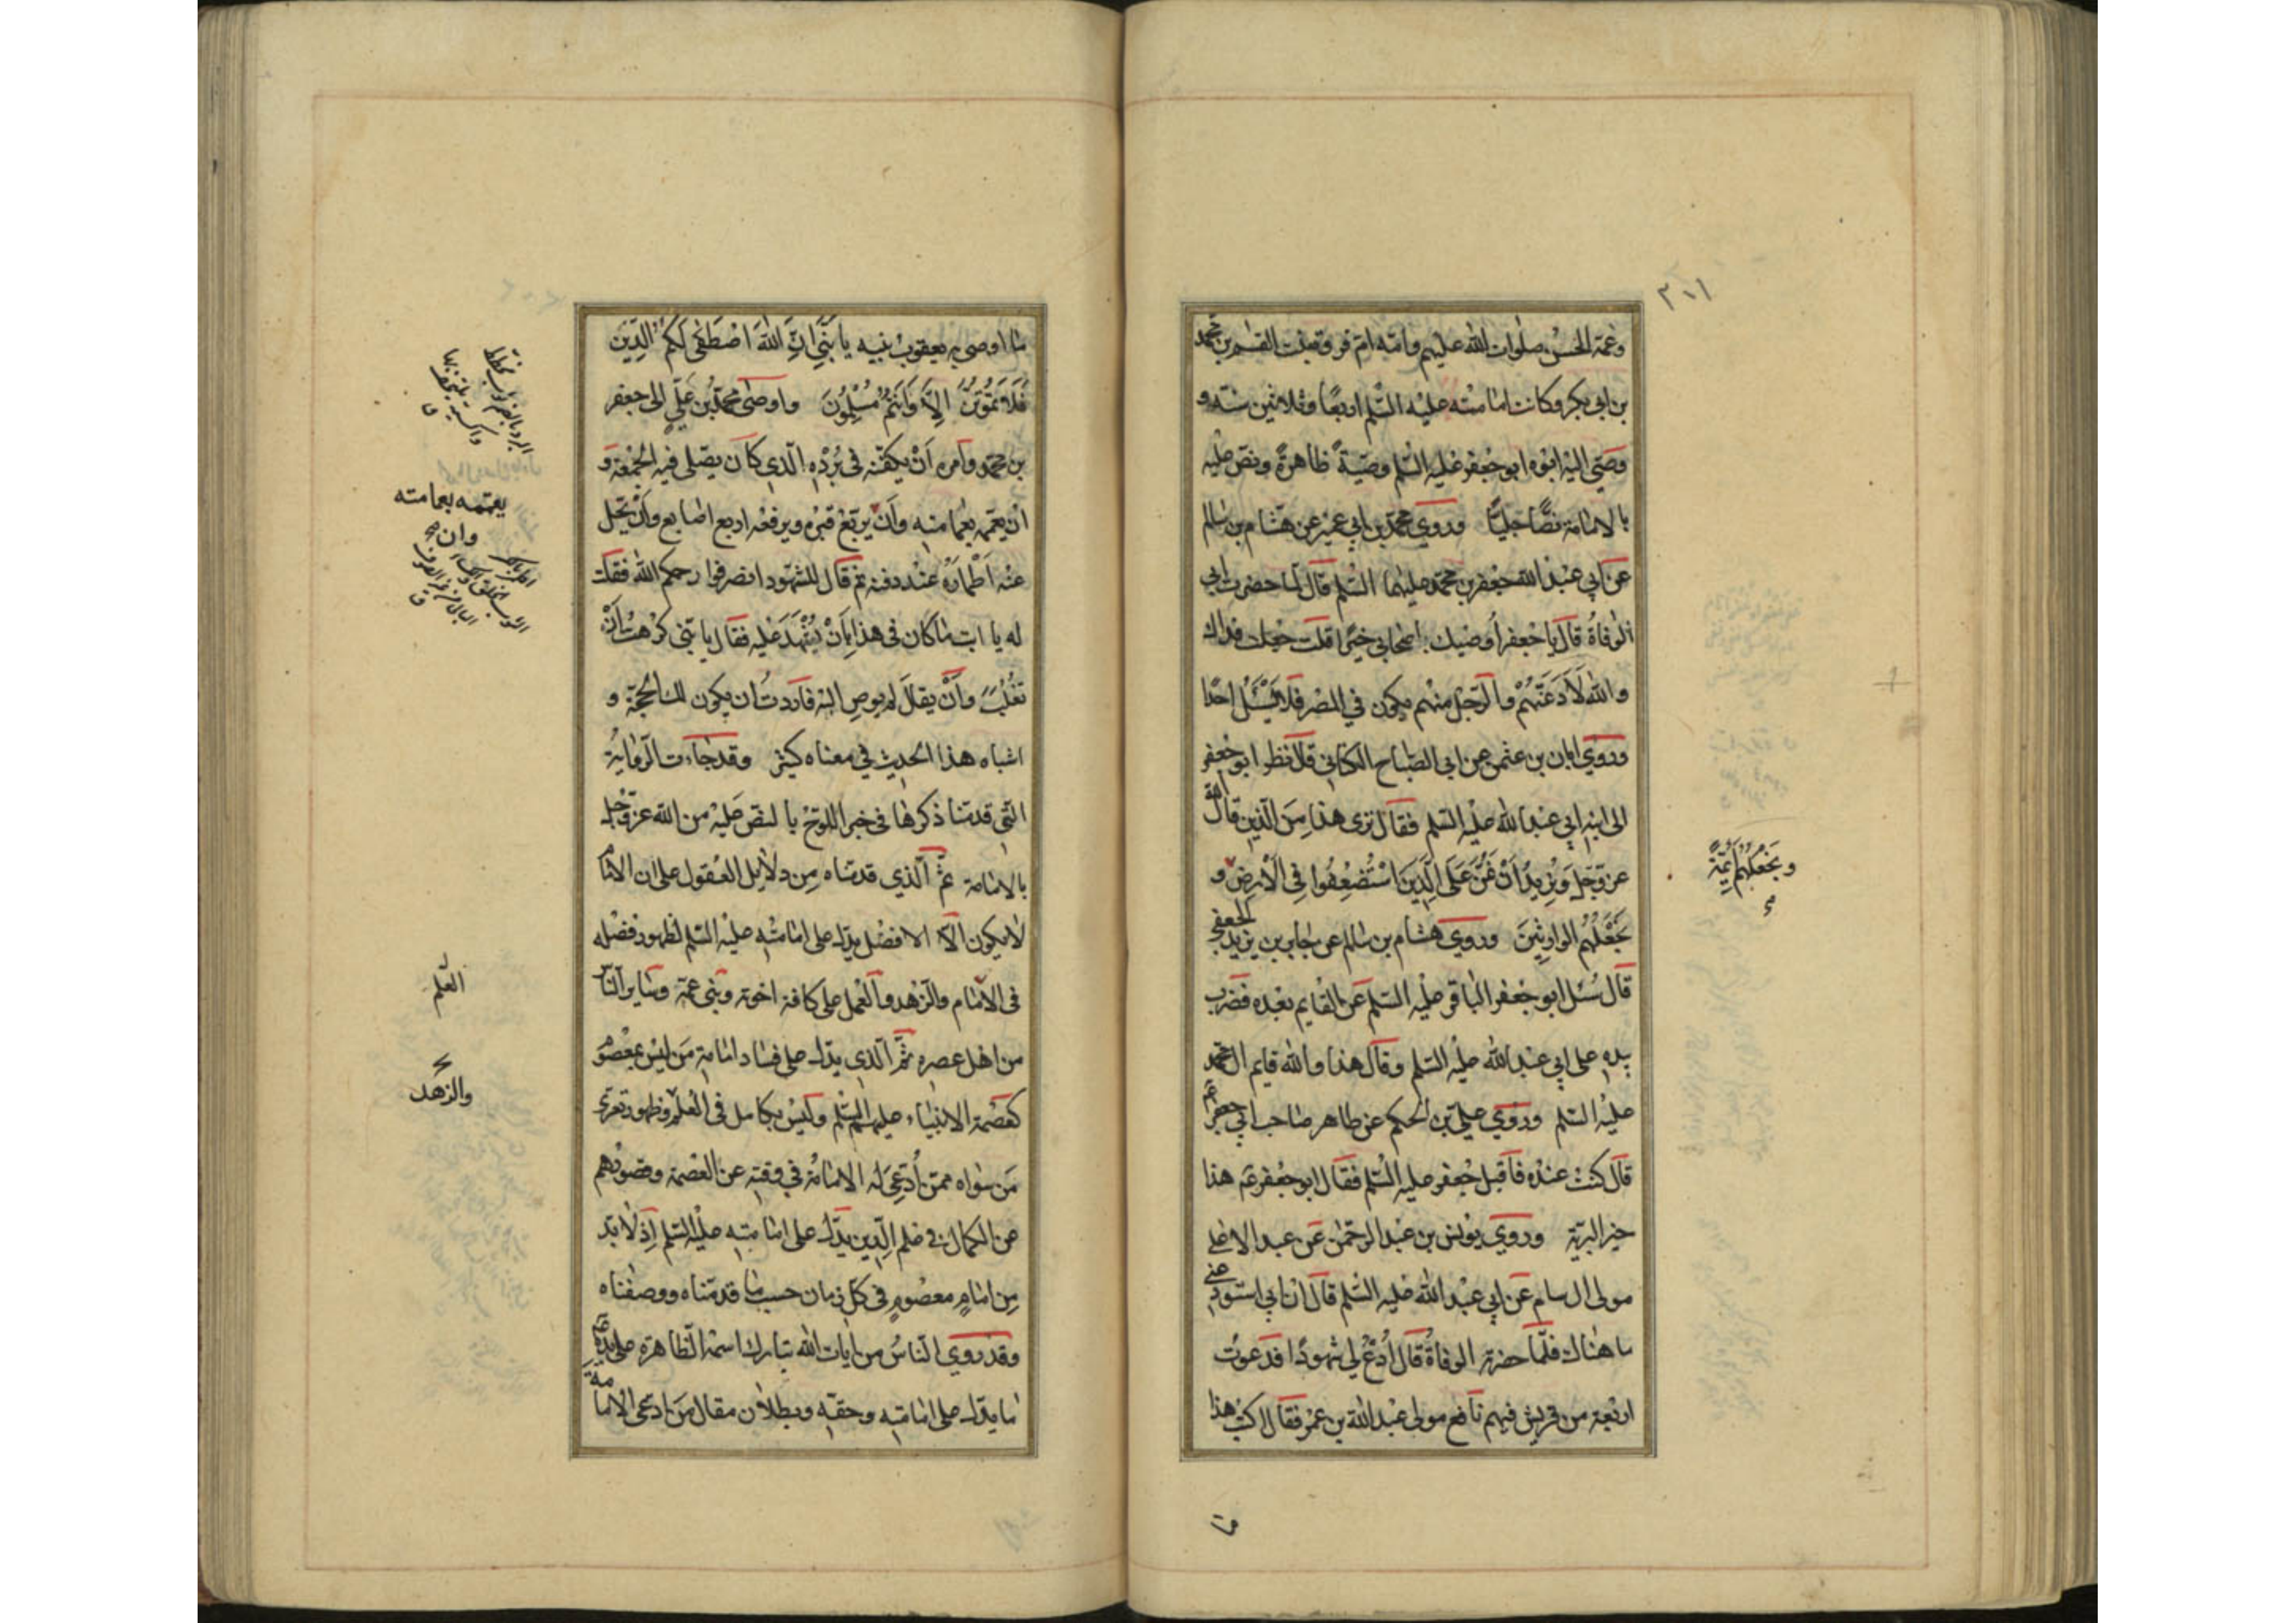 ٣٠١
وعمه الحسن صلوات الله عليهم وامه ام فروة بنت القسم بن محمد
بن ابي بكر وكانت امامته عليه السلم اربعًا وثلاثين سنة و
وصّى اليه ابوه ابو جعفر عليه السلم وصيّةً ظاهرةً ونصّ عليه
بالامامة نصًّا جليًّا وروي محمد بن ابي عمير عن هشام بن سالم
عن ابي عبد الله جعفر بن محمد عليهما السلم قال لما حضرت ابي
الوفاةُ قال يا جعفر اُوصيك باصحابي خيرًا قلت جعلت فداك
والله لَاَدَعَنَّهُمْ والرّجل منهم يكون في المصر فلا يَسْئَلُ احدًا
وروي ابان بن عثمن عن ابي الصّباح الكناني قال نظر ابو جعفر
الى ابنه ابي عبد الله عليه السلم فقال ترى هذا مِنَ الّذين قال الله
عزّ وجلّ وَنُرِيدُ اَنْ نَمُنَّ عَلَى الَّذِينَ اسْتُضْعِفُوا فِي الْاَرْضِ و
ونَجْعَلَهُمْ اَئِمَّةً
نَجْعَلَهُمُ الوارِثِينَ وروي هشام بن سالم عن جابر بن يزيد الجعفي
قال سُئل ابو جعفر الباقر عليه السلم عن القايم بعده فضرب
بيده على ابي عبد الله عليه السلم وقال هذا والله قايم ال محمد
عليه السلم وروي علي بن الحكم عن طاهر صاحب ابي جعفر عم
قال كنت عنده فاقبل جعفر عليه السلم فقال ابو جعفر عم هذا
خير البريّة وروي يونس بن عبد الرحمن عن عبد الاعلى
مولى ال سام عن ابي عبد الله عليه السلم قال ان ابي استودعني
ما هناك فلمّا حضرته الوفاةُ قال اُدْعُ لي شهودًا فدعوت
اربعة من قريش فيهم نافع مولى عبد الله بن عمر فقال اكتب هذا
ما اوصى به يعقوب بنيه يا بَنِيَّ اِنَّ اللهَ اصْطَفَى لَكُمُ الدِّينَ
فَلَا تَمُوتُنَّ اِلَّا وَاَنْتُمْ مُسْلِمُونَ واوصى محمّد بن عليّ الى جعفر
بن محمد وامره اَنْ يكفّنه في بُرْدِهِ الّذي كان يصلّي فيه الجمعة و
ان يعمّمه بعمامته وأن يربّع قبره ويرفعه اربع اصابع وأن يحل
يعممه بعمامته
وان
عنه اَطْمارَهُ عند دفنه ثم قال للشهود انصرفوا رحمكم الله فقلت
له يا ابت ما كان في هذا بِاَنْ يُشْهَدَ عليه فقال يا بنيّ كرهت أن
تُغْلَبَ وأن يقال لم يوص اليه فاردتُ ان يكون لك الحجّة و
اشباه هذا الحديث في معناه كثير وقد جاءت الرّواية
التي قدمنا ذكرها في خبر اللوح بالنص عليه من الله عزّ وجلّ
بالامامة ثمّ الّذي قدمناه مِن دلايل العقول على ان الامام
لا يكون الّا الافضل يدلّ على امامته عليه السلم لظهور فضله
في الامام والزهد والعمل على كافة اخوته وبني عمّه وساير الناس
العلم
من اهل عصره ثمّ الّذي يدلّ على فساد امامة مَن ليس بمعصوم
والزهد
كعصمة الانبياء عليهم السلم وليس بكامل في العلم وظهور تعرّى
مَن سواه ممّن اُدّعي له الامامة في وقته عن العصمة وقصورهم
عن الكمال في علم الدّين يدلّ على امامته عليه السلم اِذ لا بدّ
مِن امامٍ معصومٍ في كلّ زمان حسب ما قدمناه ووصفناه
وقد روي الناسُ من ايات الله تبارك اسمه الظاهرة على يده عم
ما يدلّ على امامته وحقّه وبطلان مقال مَن ادّعى الامامة